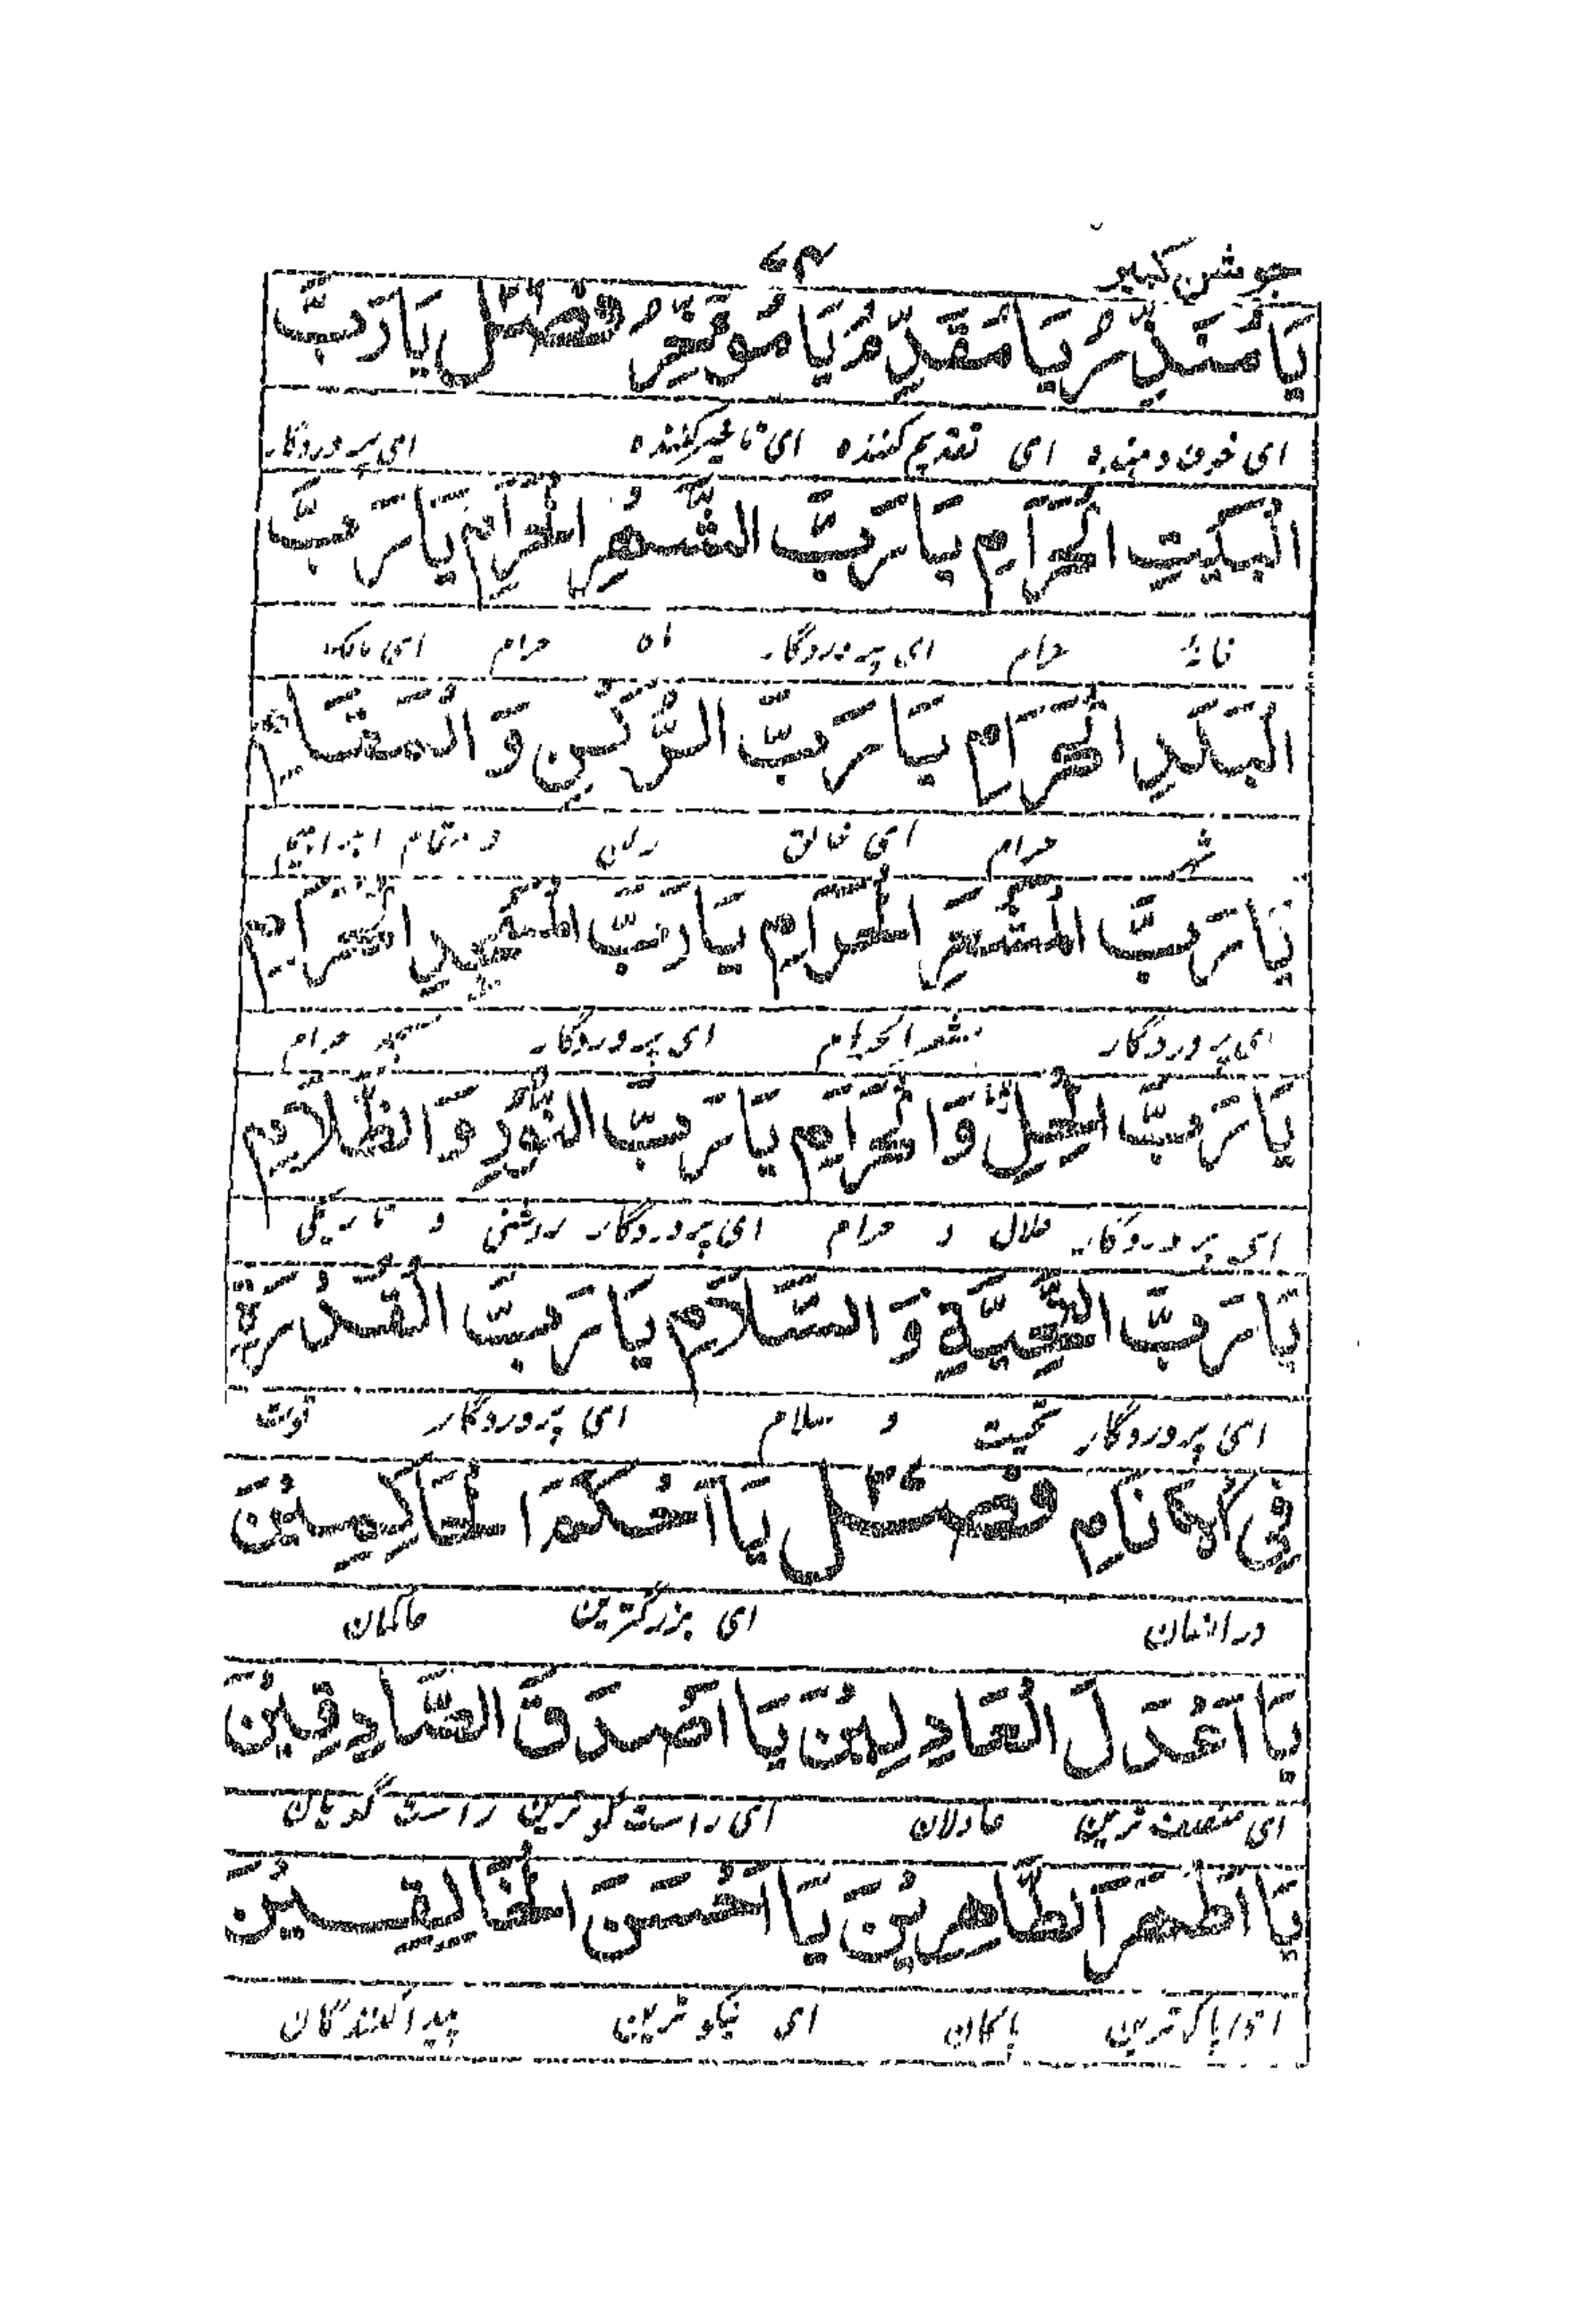 جوشن کبیر
یَا مُنَذِّرُ یَا مُقَدِّمُ یَا مُؤَخِّرُ فصل یَا رَبَّ
ای خوف دهنده ای تقدیم کننده ای تاخیر کننده ای پروردگار
الْبَیْتِ الْحَرَامِ یَا رَبَّ الشَّهْرِ الْحَرَامِ یَا رَبَّ
خانهٔ حرام ای پروردگار ماه حرام ای مالک
الْبَلَدِ الْحَرَامِ یَا رَبَّ الرُّکْنِ وَ الْمَقَامِ
شهر حرام ای خالق رکن و مقام ابراهیم
یَا رَبَّ الْمَشْعَرِ الْحَرَامِ یَا رَبَّ الْمَسْجِدِ الْحَرَامِ
ای پروردگار مشعر الحرام ای پروردگار مسجد حرام
یَا رَبَّ الْحِلِّ وَ الْحَرَامِ یَا رَبَّ النُّوْرِ وَ الظَّلَامِ
ای پروردگار حلال و حرام ای پروردگار روشنی و تاریکی
یَا رَبَّ التَّحِیَّةِ وَ السَّلَامِ یَا رَبَّ الْقُدْرَةِ
ای پروردگار تحیت و سلام ای پروردگار قوت
فِی الْاَنَامِ فصل یَا اَحْکَمَ الْحَاکِمِیْنَ
در انسان ای بزرگترین حاکمان
یَا اَعْدَلَ الْعَادِلِیْنَ یَا اَصْدَقَ الصَّادِقِیْنَ
ای منصف ترین عادلان ای راست گو ترین راست گویان
یَا اَطْهَرَ الطَّاهِرِیْنَ یَا اَحْسَنَ الْخَالِقِیْنَ
ای پاک ترین پاکان ای نیکو ترین پیدا کنندگان